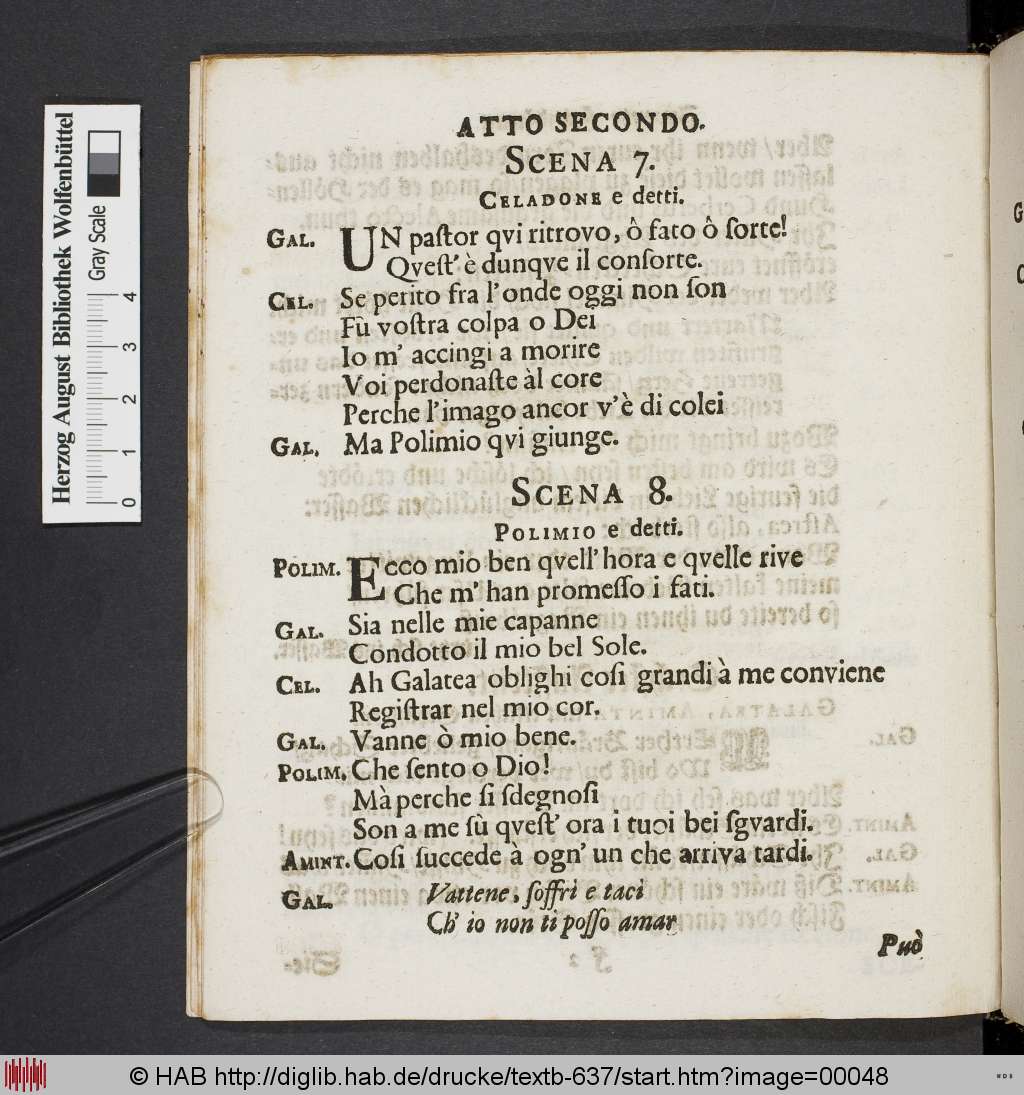 ATTO SECONDO.
SCENA 7.
CELADONE e detti.
GAL. UN paſtor qvi ritrovo, ô fato ô ſorte!
Qveſt' è dunqve il conſorte.
CEL. Se perito fra l'onde oggi non ſon
Fù voſtra colpa o Dei
Io m' accingi a morire
Voi perdonaſte àl core
Perche l'imago ancor v'è di colei
GAL. Ma Polimio qvi giunge.
SCENA 8.
POLIMIO e detti.
POLIM. Ecco mio ben qvell' hora e qvelle rive
Che m' han promeſſo i fati.
GAL. Sia nelle mie capanne
Condotto il mio bel Sole.
CEL. Ah Galatea oblighi coſi grandi à me conviene
Regiſtrar nel mio cor.
GAL. Vanne ò mio bene.
POLIM. Che ſento o Dio!
Mà perche ſi ſdegnoſi
Son a me ſù qveſt' ora i tuoi bei ſgvardi.
AMINT. Coſi ſuccede à ogn' un che arriva tardi.
GAL. Vattene, ſoffri e taci
Ch' io non ti poſſo amar
Può
Herzog August Bibliothek Wolfenbüttel
Gray Scale
0 1 2 3 4
© HAB http://diglib.hab.de/drucke/textb-637/start.htm?image=00048